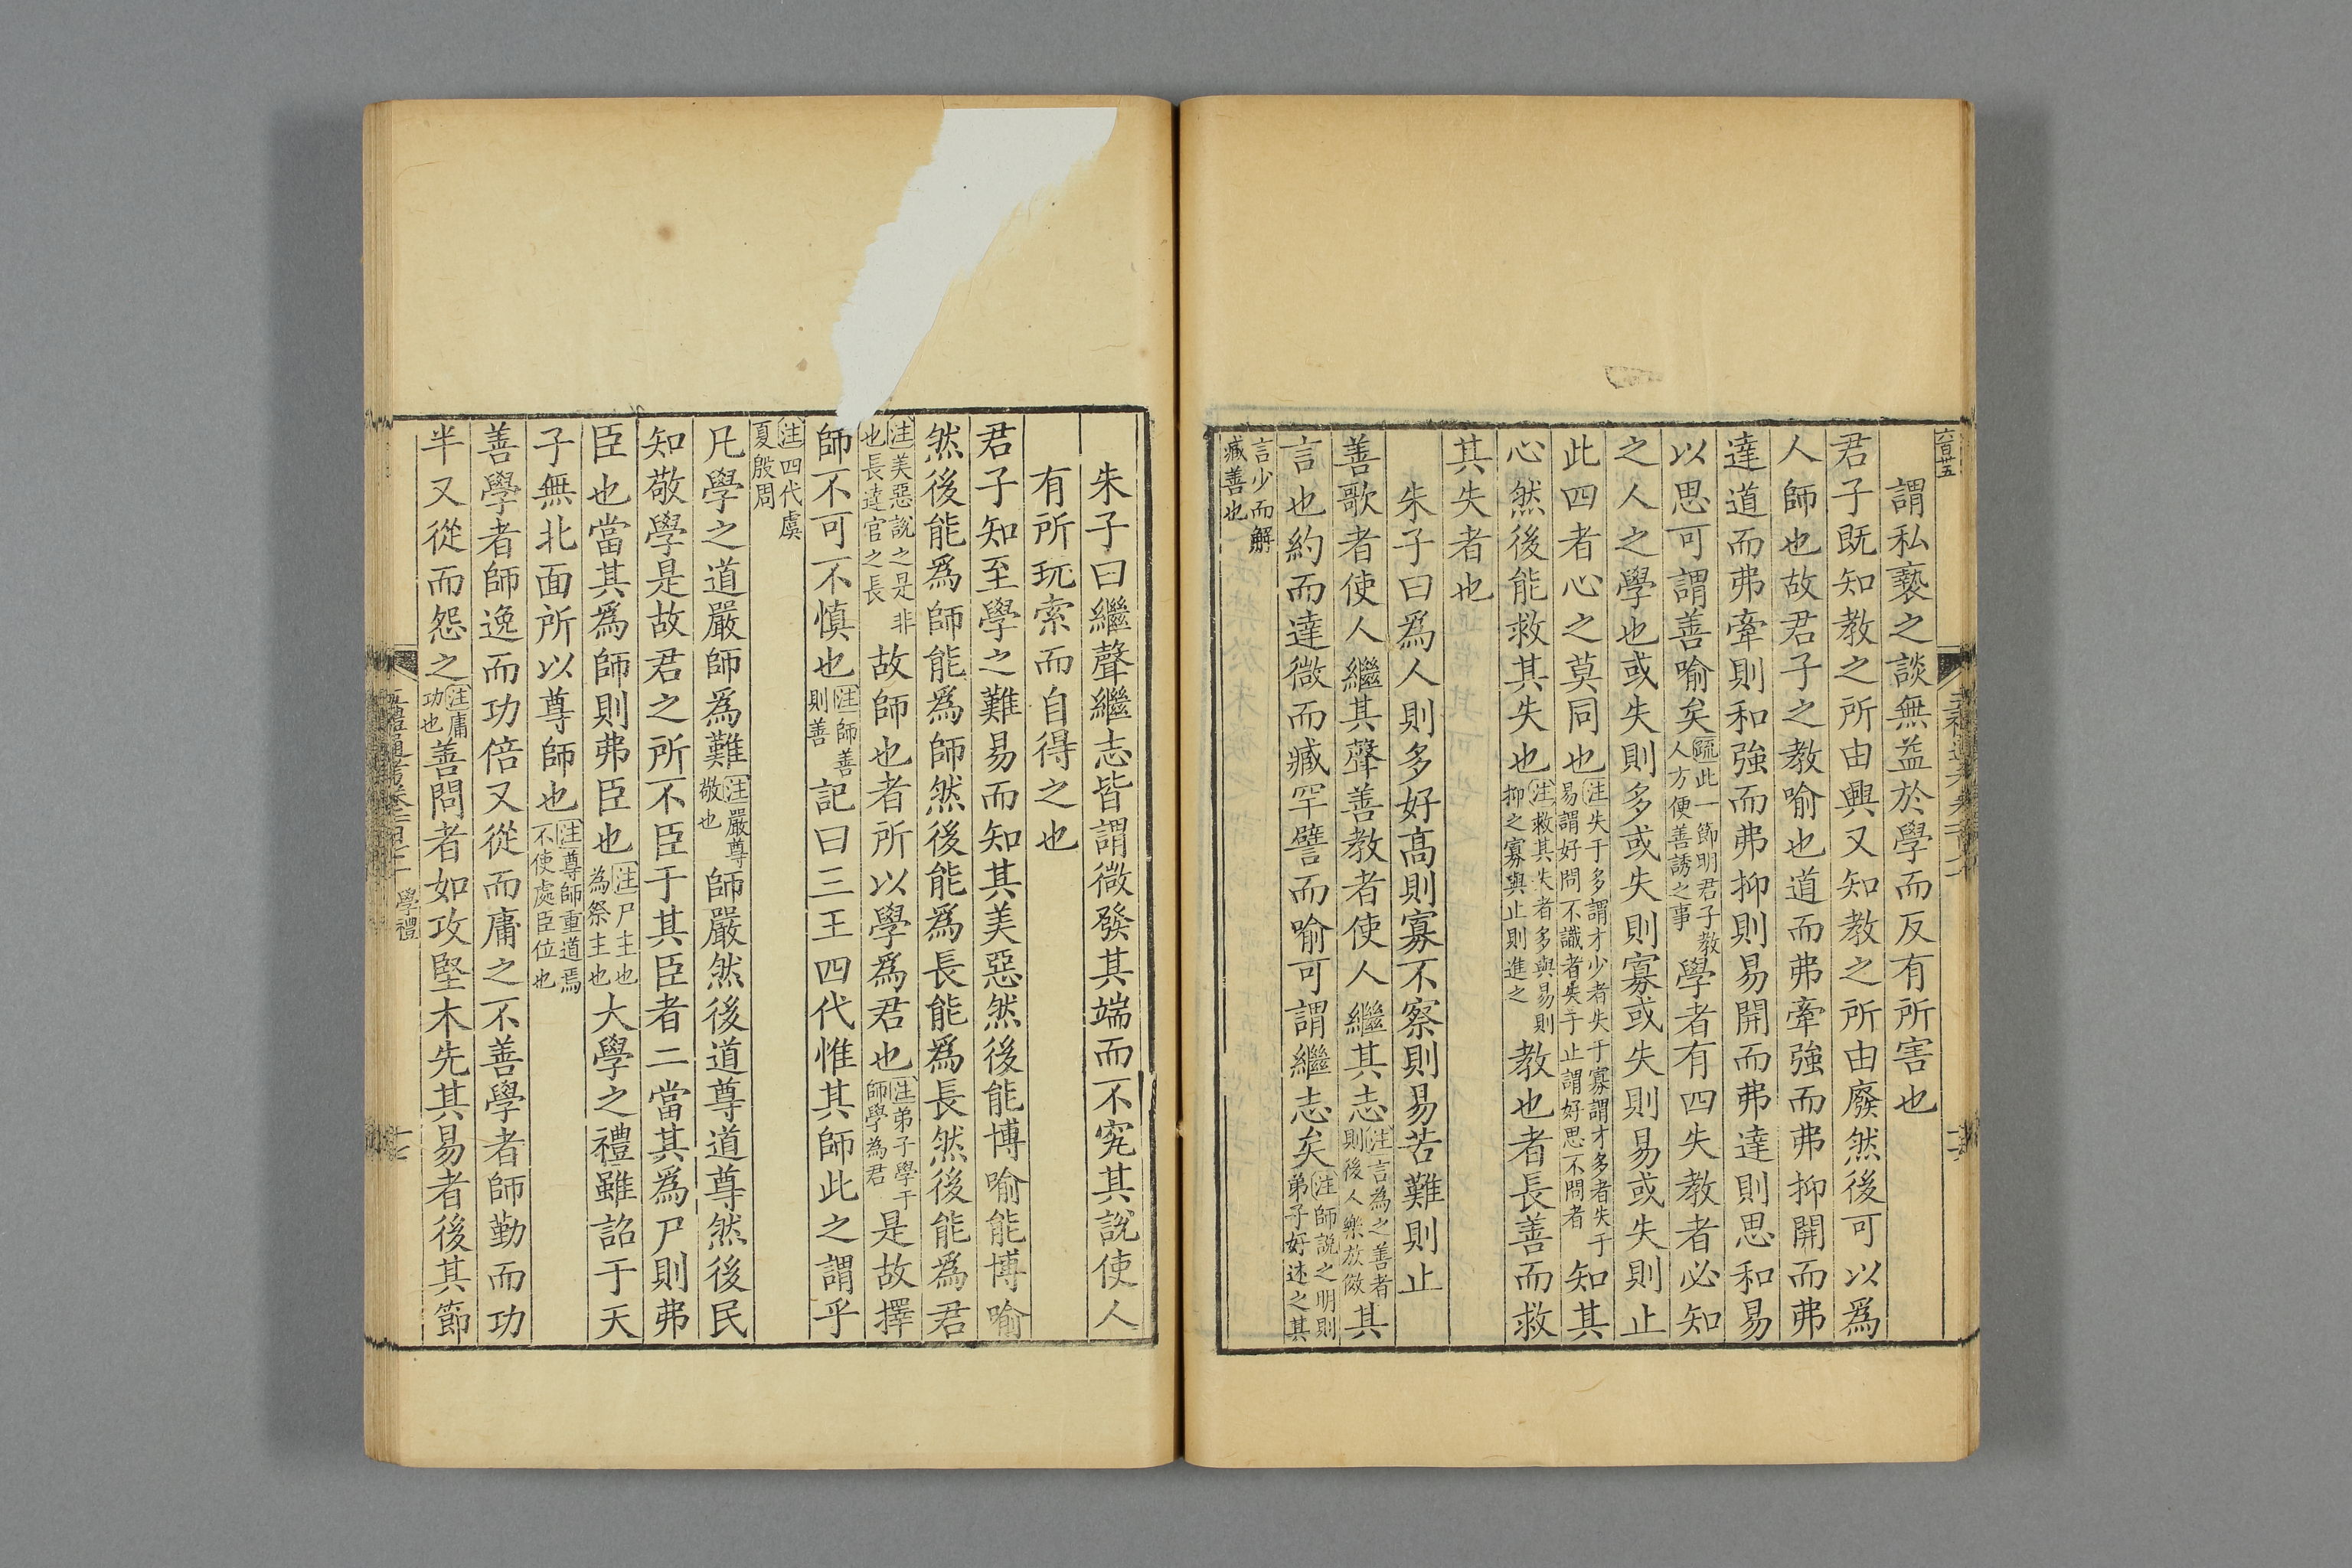 六百廿五
謂私褻之談無益於學而反有所害也
君子既知教之所由興又知教之所由廢然後可以爲
人師也故君子之教喻也道而弗牽強而弗抑開而弗
達道而弗牽則和強而弗抑則易開而弗達則思和易
以思可謂善喻矣疏此一節明君子教人方便善誘之事學者有四失教者必知
之人之學也或失則多或失則寡或失則易或失則止
此四者心之莫同也注失于多謂才少者失于寡謂才多者失于易謂好問不識者失于止謂好思不問者知其
心然後能救其失也注救其失者多與易則抑之寡與止則進之教也者長善而救
其失者也
朱子曰爲人則多好高則寡不察則易苦難則止
善歌者使人繼其聲善教者使人繼其志注言為之善者則後人樂放傚其
言也約而達微而臧罕譬而喻可謂繼志矣注師說之明則弟子好述之其
言少而解臧善也
朱子曰繼聲繼志皆謂微發其端而不究其說使人
有所玩索而自得之也
君子知至學之難易而知其美惡然後能博喻能博喻
然後能爲師能爲師然後能爲長能爲長然後能爲君
注美惡說之是非也長達官之長故師也者所以學爲君也注弟子學于師學為君是故擇
師不可不慎也注師善則善記曰三王四代惟其師此之謂乎
注四代虞夏殷周
凡學之道嚴師爲難注嚴尊敬也師嚴然後道尊道尊然後民
知敬學是故君之所不臣于其臣者二當其爲尸則弗
臣也當其爲師則弗臣也注尸主也為祭主也大學之禮雖詔于天
子無北面所以尊師也注尊師重道焉不使處臣位也
善學者師逸而功倍又從而庸之不善學者師勤而功
半又從而怨之注庸功也善問者如攻堅木先其易者後其節
學禮